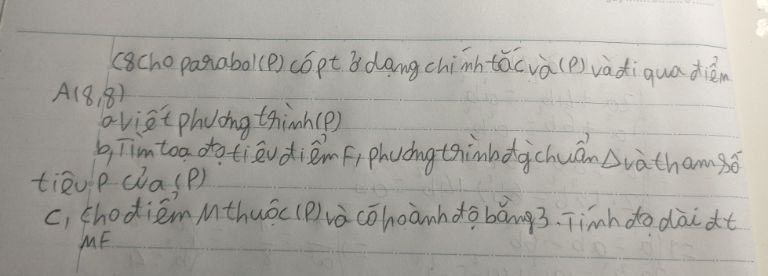 C8 cho parabol (P) có pt ở dạng chính tắc và (P) và đi qua điểm
A(8,8)
a viết phương trình (P)
b, Tìm toạ độ tiêu điểm F, phương trình đg chuẩn Δ và tham số
tiêu P của (P)
c, cho điểm M thuộc (P) và có hoành độ bằng 3. Tính độ dài đt
MF